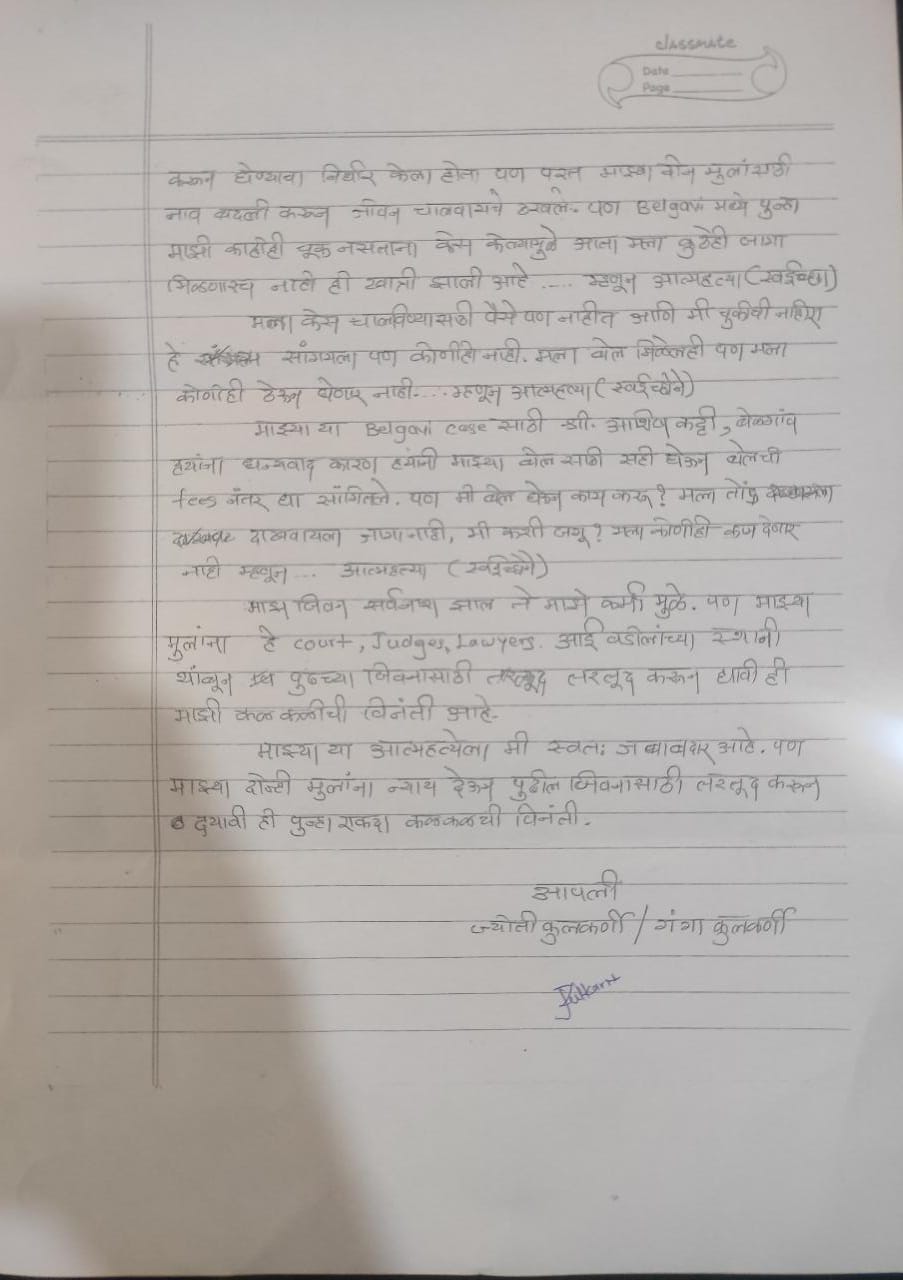 classmate
Date
Page
करून घेण्याचा निर्धार केला होता पण परत माझ्या दोन मुलांसाठी
नाव बदली करून जीवन चालवायचे ठरवले. पण Belgavi मध्ये पुन्हा
माझी काहीही चूक नसताना केस केल्यामुळे आता मला कुठेही जागा
मिळणारच नाही ही खात्री झाली आहे ..... म्हणून आत्महत्या (स्वईच्छा)
मला केस चालविण्यासाठी पैसे पण नाहीत आणि मी चुकीची नाहीए
हे सांगायला पण कोणीही नाही. मला बेल मिळेलही पण मला
कोणीही ठेऊन घेणार नाही.... म्हणून आत्महत्या (स्वईच्छेने)
माझ्या या Belgavi case साठी श्री. आशिष कट्टी, बेळगांव
ह्यांना धन्यवाद कारण ह्यांनी माझ्या बेल साठी सही घेऊन बेलची
fees नंतर द्या सांगितले. पण मी बेल घेऊन काय करू? मला तोंड
दाखवायला जागा नाही, मी कशी जगू? मला कोणीही काम देणार
नाही म्हणून... आत्महत्या (स्वईच्छेने)
माझं जिवन सर्वनाश झाल ते माझे कर्मा मुळे. पण माझ्या
मुलांना हे court, Judges, Lawyers. आई वडीलांच्या स्थानी
थांबून पुढच्या जिवनासाठी तरतूद करून द्यावी ही
माझी कळकळीची विनंती आहे.
माझ्या या आत्महत्येला मी स्वतः जबाबदार आहे. पण
माझ्या दोन्ही मुलांना न्याय देऊन पुढील जिवनासाठी तरतूद करून
द्यावी ही पुन्हा एकदा कळकळची विनंती.
आपली
ज्योती कुलकर्णी / गंगा कुलकर्णी